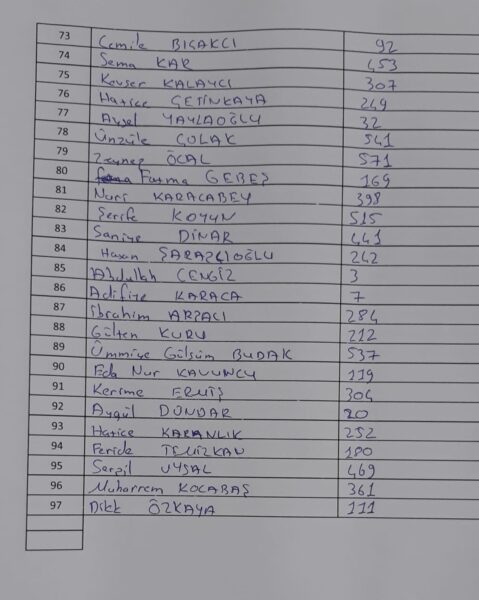 73 Cemile BIÇAKCI 92
74 Sema KAR 453
75 Kevser KALAYCI 307
76 Hatice ÇETİNKAYA 249
77 Aysel YAYLAOĞLU 32
78 Ünzüle ÇOLAK 541
79 Zeynep ÖCAL 571
80 Fatma GEBEŞ 169
81 Nuri KARACABEY 398
82 Şerife KOYUN 515
83 Saniye DİNAR 441
84 Hasan ŞARAPÇIOĞLU 242
85 Abdullah CENGİZ 3
86 Adifiye KARACA 7
87 İbrahim ARPACI 284
88 Gülten KURU 212
89 Ümmiye Gülsüm BUDAK 537
90 Eda Nur KAVUNCU 119
91 Kerime ERMİŞ 304
92 Aygül DÜNDAR 20
93 Hatice KARANLIK 252
94 Feride TEMİZKAN 180
95 Serpil UYSAL 469
96 Muharrem KOCABAŞ 361
97 ÖZKAYA 111